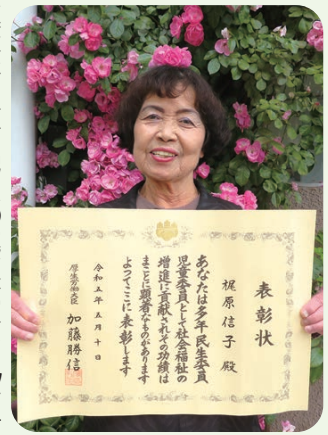 表彰状
梶原信子 殿
あなたは多年民生委員
児童委員として社会福祉の
増進に貢献されその功績は
まことに顕著なものがあります
よってここに表彰します
令和五年五月十日
厚生労働大臣 加藤勝信